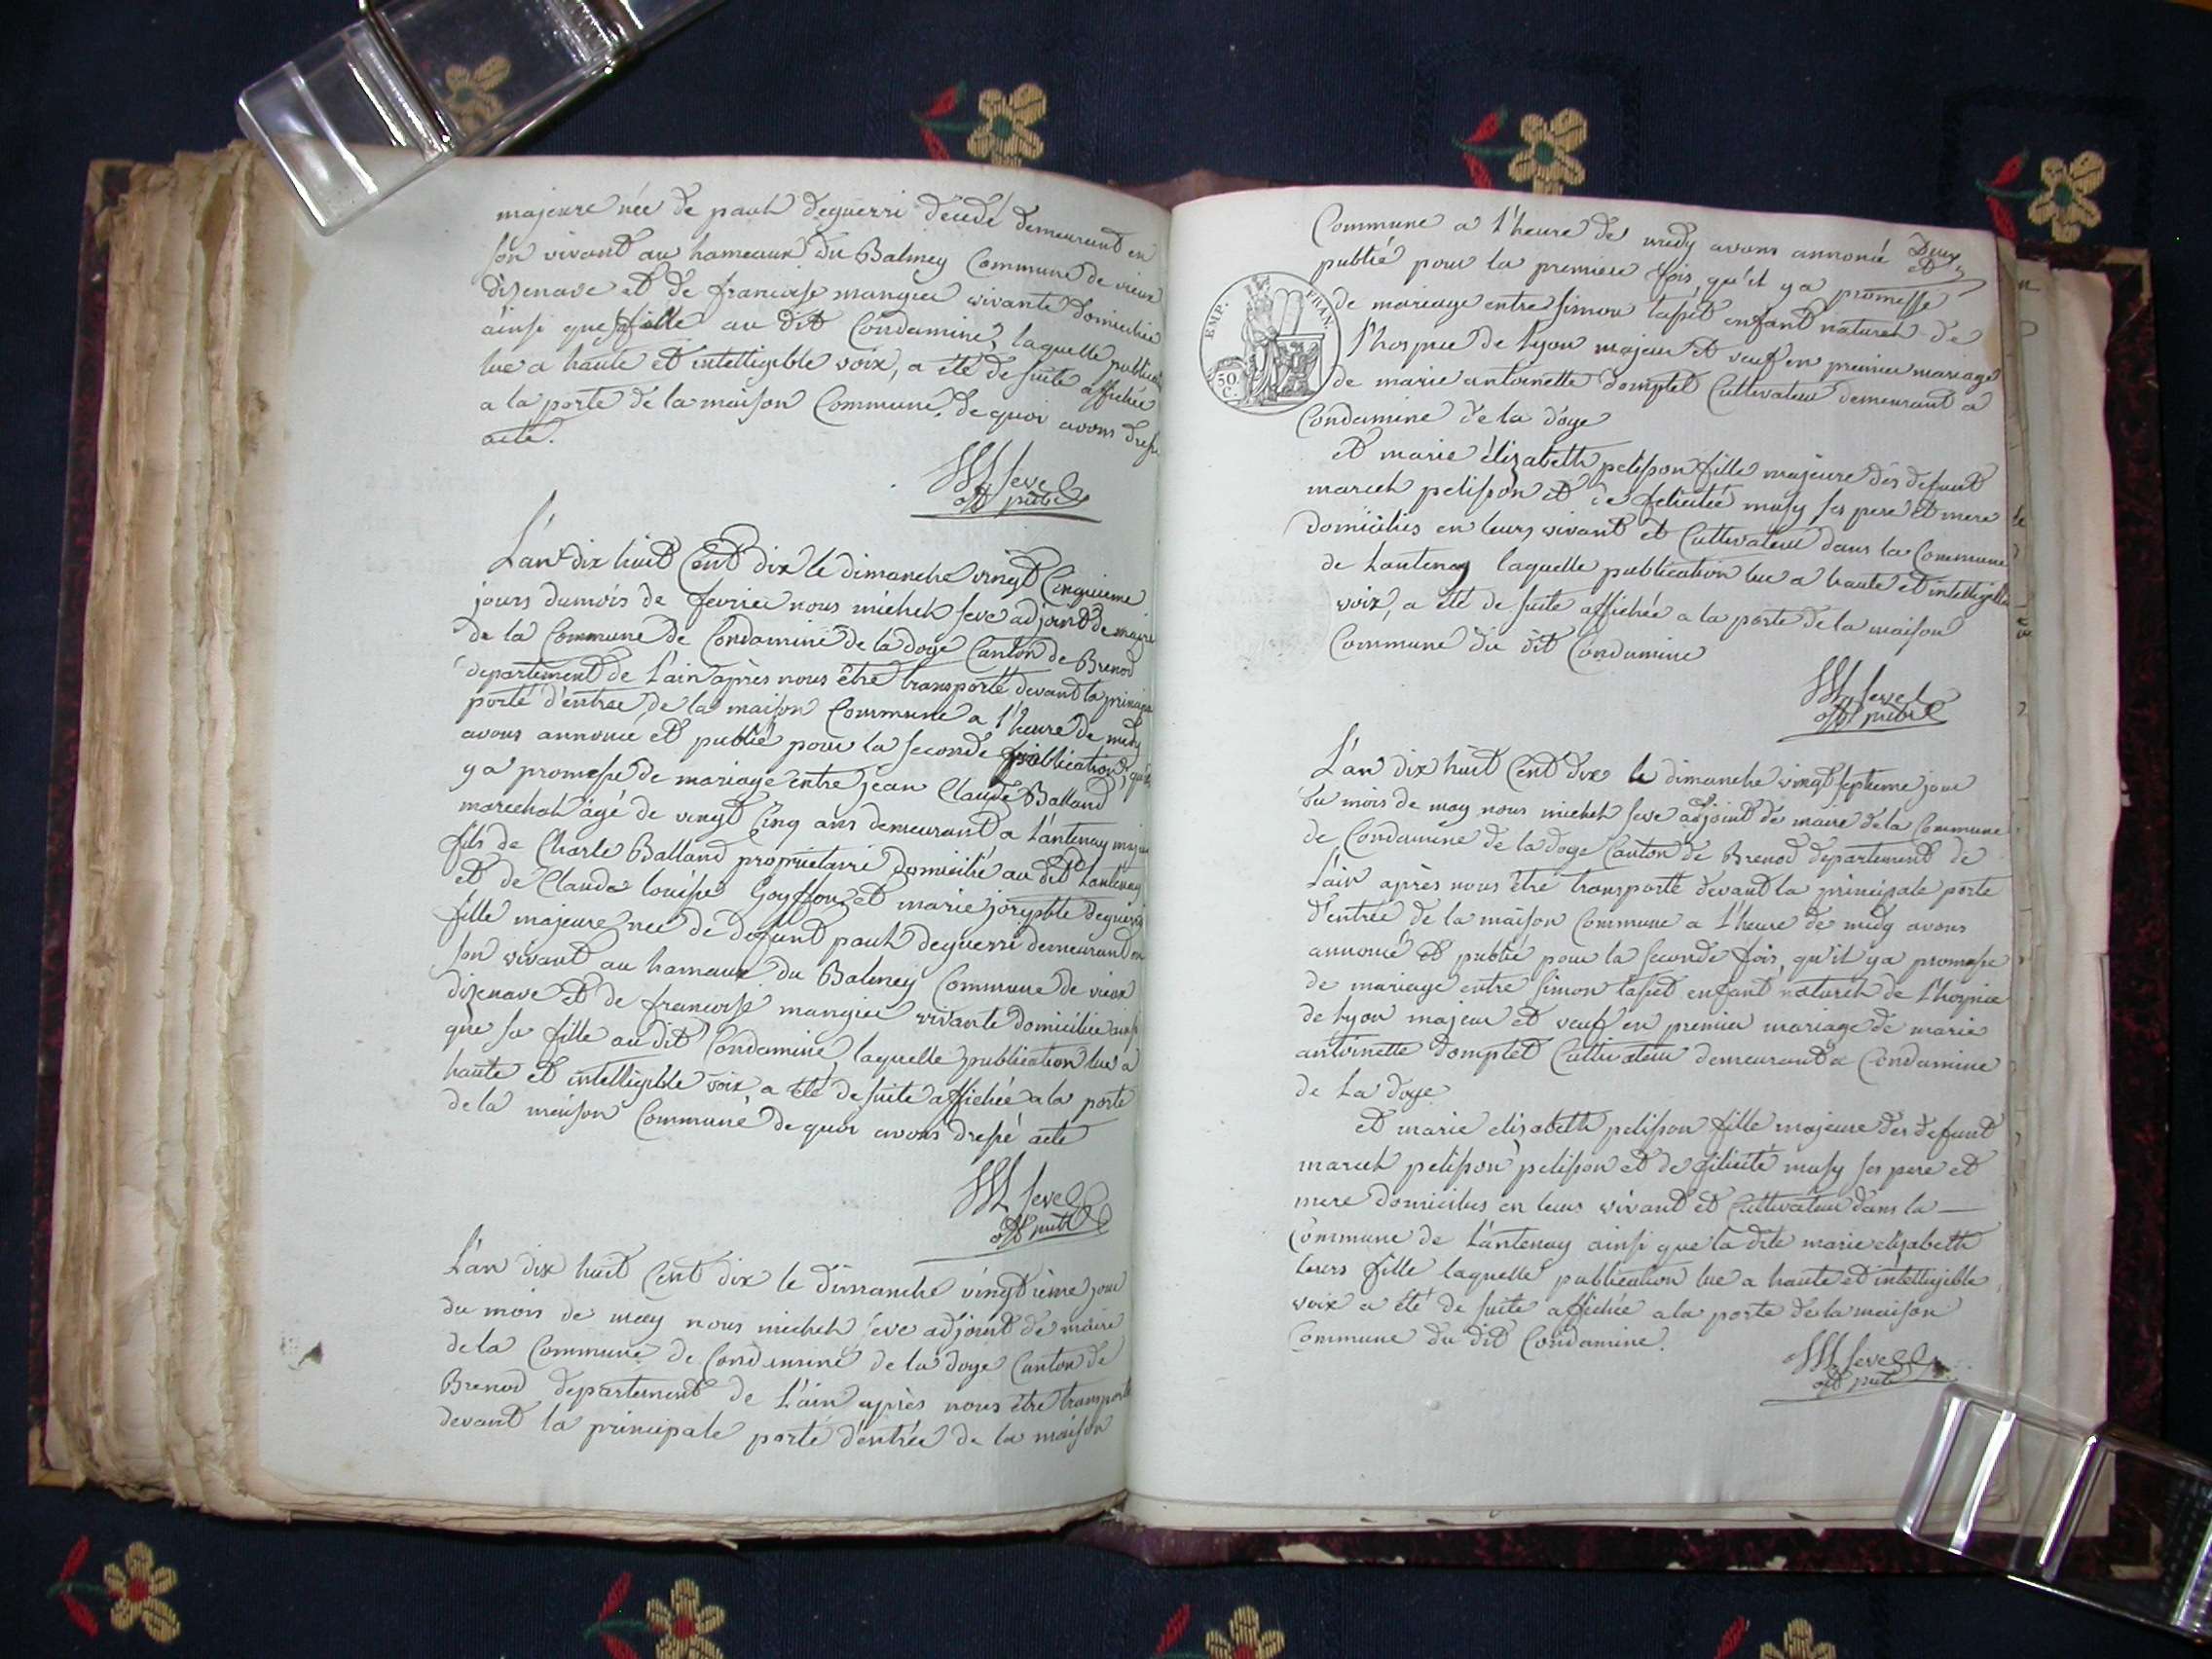 majeure née de paul deguerri décédé demeurant en
son vivant au hameaux du Balmey Commune de vieux
dizenave et de francoise mangier vivante domiciliée
ainsi que fille au dit Condamine, laquelle publication
lue a haute et intelligible voix, a été de suite affichée
a la porte de la maison Commune, de quoi avons dressé
acte.
M Seve
off publ
L'an dix huit Cent dix le dimanche vingt Cinquieme
jours du mois de fevrier nous michel seve adjoint de maire
de la Commune de Condamine de la doye Canton de Brenod
departement de L'ain après nous être transporté devant la principale
porte d'entrée de la maison Commune a l'heure de midy
avons annoncé et publié pour la seconde publication, qu'il
y a promesse de mariage entre jean Claude Balland
marechal âgé de vingt Cinq ans demeurant a Lantenay majeur
fils de Charle Balland proprietaire domicilié au dit Lantenay
et de Clauda louise Goyffon et marie deguerri
fille majeure née de defunt paul deguerri demeurant en
son vivant au hameaux du Balmey Commune de vieux
dizenave et de francoise mangier vivante domiciliée ainsi
que sa fille au dit Condamine, laquelle publication lue a
haute et intelligible voix a été de suite affichée a la porte
de la maison Commune de quoi avons dressé acte
M Seve
off publ
L'an dix huit Cent dix le dimanche vingtième jour
du mois de may nous michel seve adjoint de maire
de la Commune de Condamine de la doye Canton de
Brenod departement de L'ain après nous être transporté
devant la principale porte d'entrée de la maison
Commune a l'heure de midy avons annoncé Deux
et
publié pour la premiere fois, qu'il y a promesse
de mariage entre simon tapet enfant naturel de
l'hospice de Lyon majeur et veuf en premier mariage
de marie antoinette domptet Cultivateur demeurant a
Condamine de la doye
EMP. FRAN.
50 C.
et marie élizabeth pelisson fille majeure des defunt
marcel pelisson et de felicité musy ses pere et mere
domiciliés en leurs vivant et Cultivateur dans la Commune
de Lantenay laquelle publication lue a haute et intelligible
voix, a été de suite affichée a la porte de la maison
Commune du dit Condamine
M Seve
off publ
L'an dix huit Cent dix le dimanche vingt septieme jour
du mois de may nous michel seve adjoint de maire de la Commune
de Condamine de la doye Canton de Brenod departement de
L'ain après nous être transporté devant la principale porte
d'entrée de la maison Commune a l'heure de midy avons
annoncé et publié pour la seconde fois, qu'il y a promesse
de mariage entre simon tapet enfant naturel de l'hospice
de Lyon majeur et veuf en premier mariage de marie
antoinette domptet Cultivateur demeurant a Condamine
de La doye
et marie elizabeth pelisson fille majeure des defunt
marcel pelisson pelisson et de félicité musy ses pere et
mere domiciliés en leurs vivant et Cultivateur dans la
Commune de Lantenay ainsi que la dite marie elizabeth
leurs fille laquelle publication lue a haute et intelligible
voix a été de suite affichée a la porte de la maison
Commune du dit Condamine.
M Seve
off publ